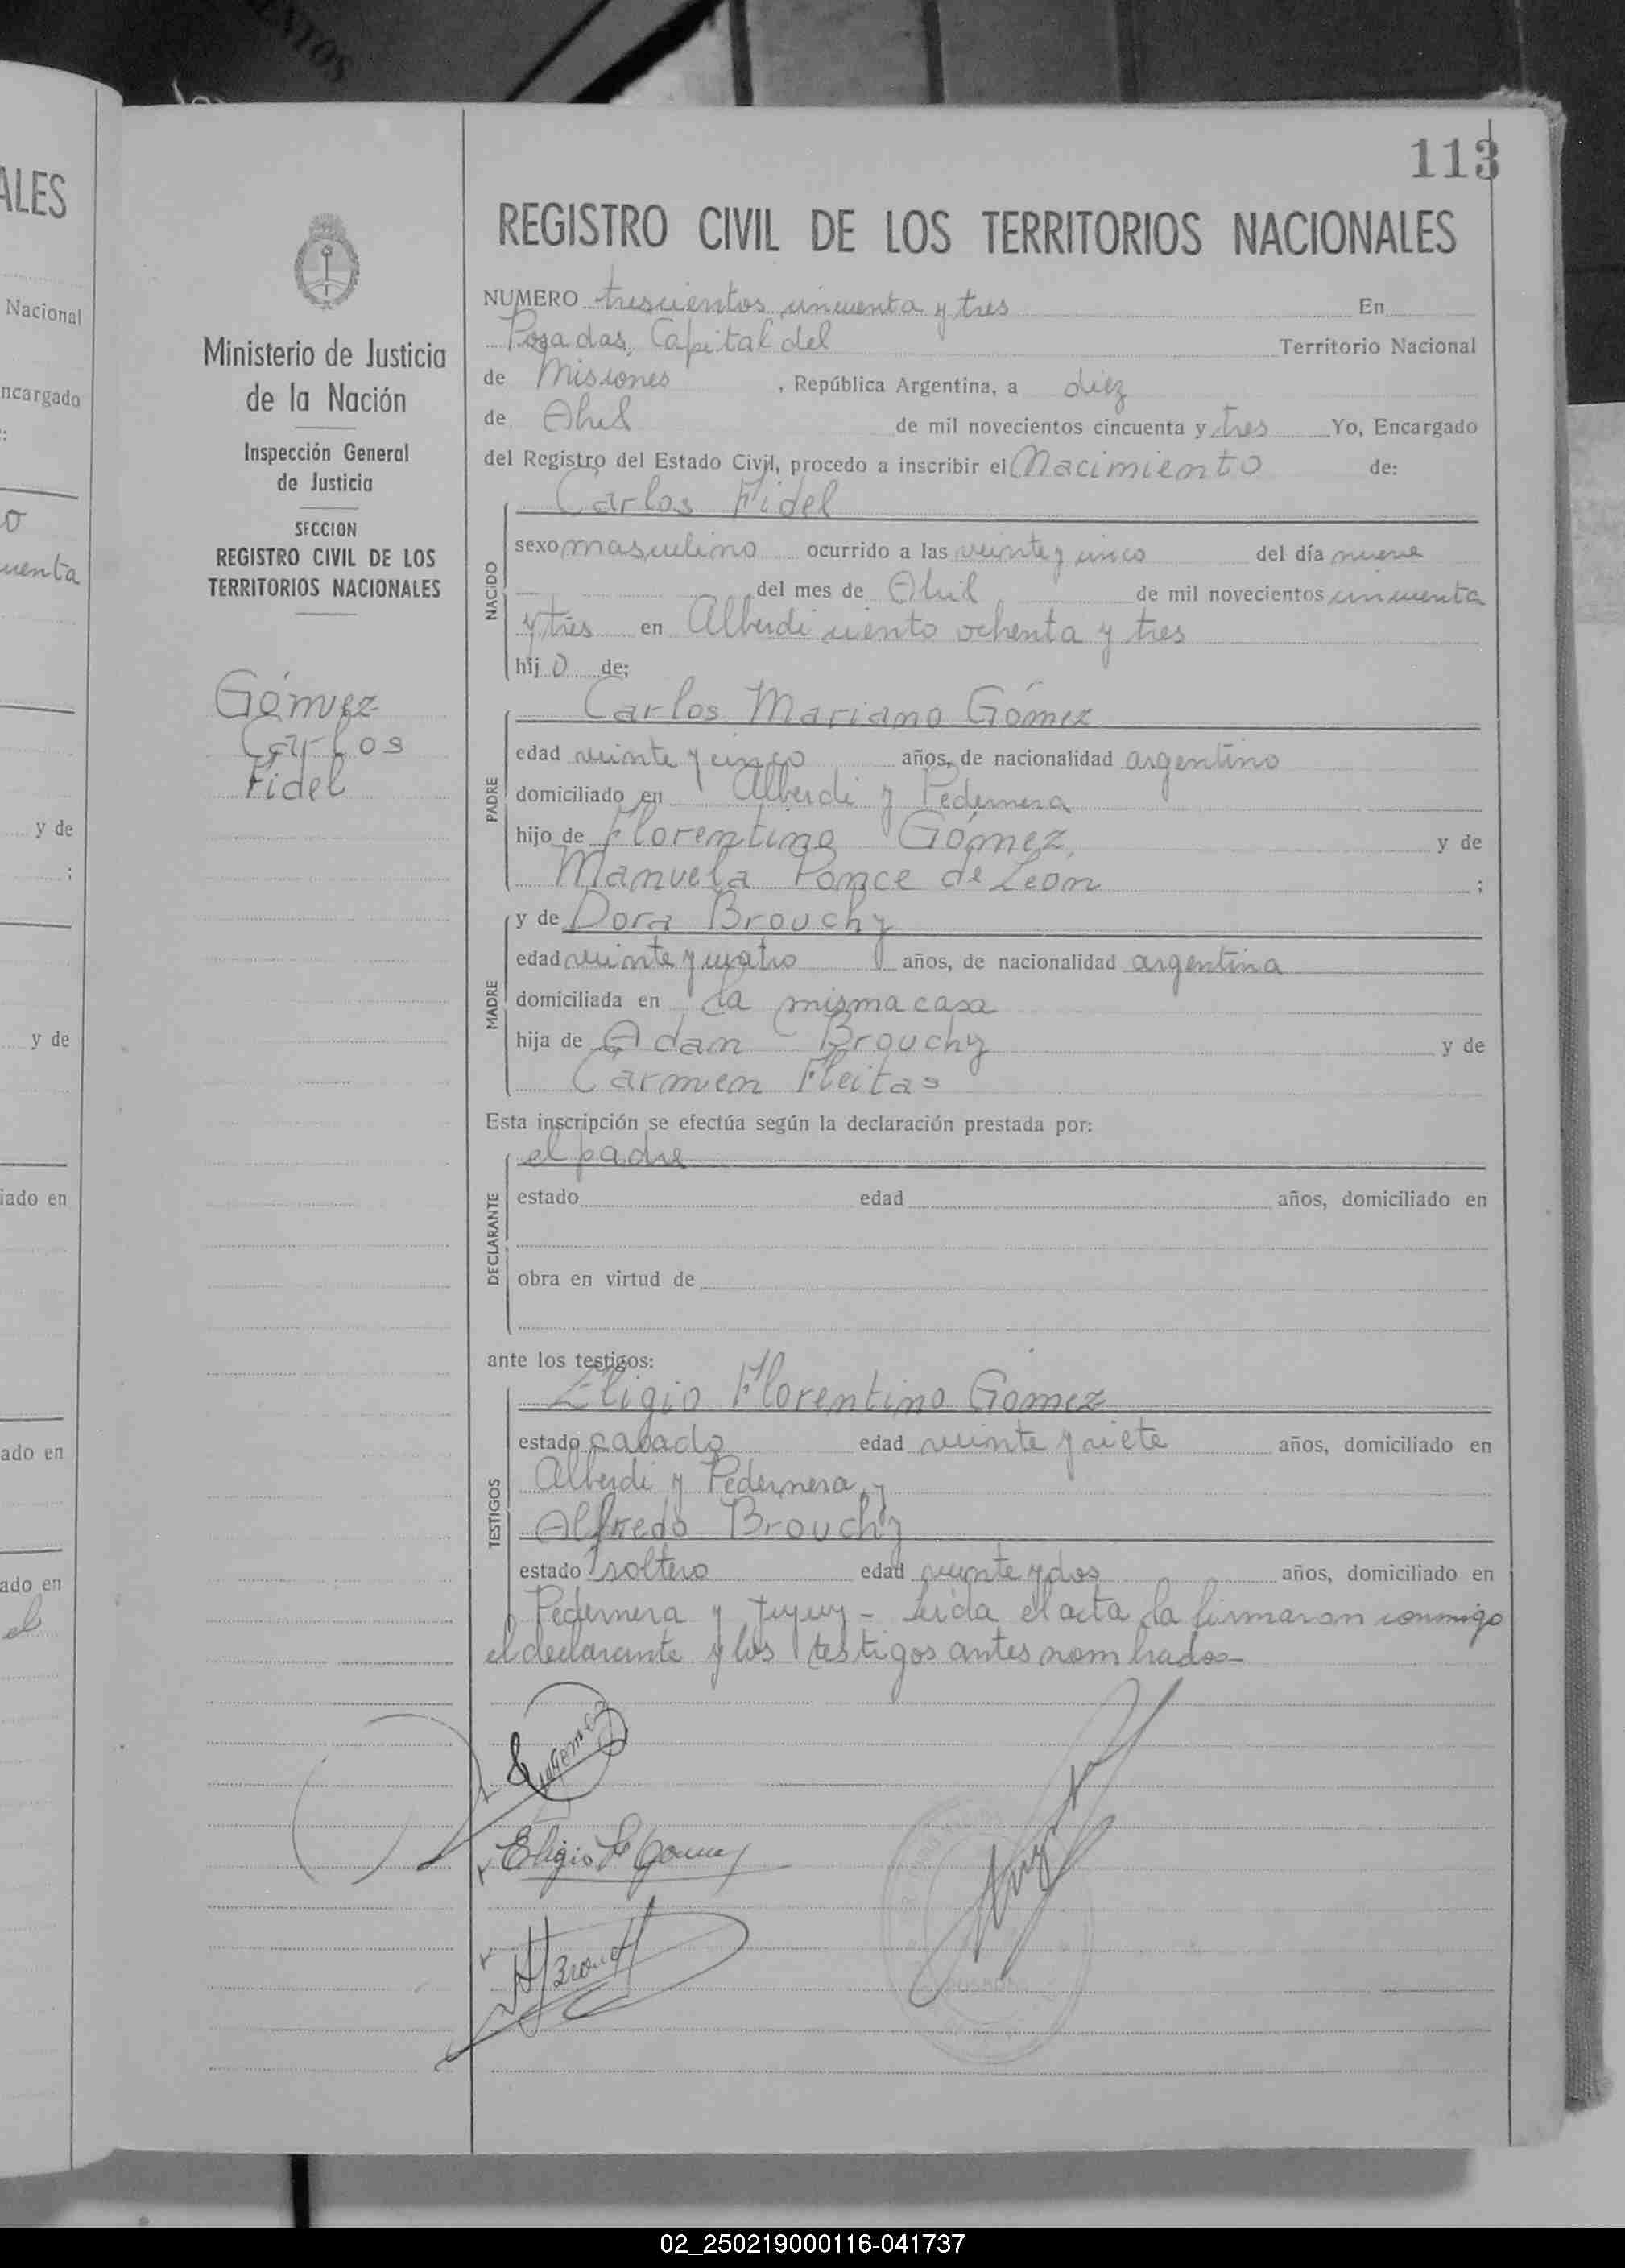 113
ALES
Nacional
ncargado
o
uenta
y de
;
y de
iado en
ado en
ado en
el
Ministerio de Justicia
de la Nación
Inspección General
de Justicia
SECCION
REGISTRO CIVIL DE LOS
TERRITORIOS NACIONALES
Gómez
Carlos
Fidel
REGISTRO CIVIL DE LOS TERRITORIOS NACIONALES
NUMERO trescientos cincuenta y tres En
Posadas, Capital del Territorio Nacional
de Misiones , República Argentina, a diez
de Abril de mil novecientos cincuenta y tres Yo, Encargado
del Registro del Estado Civil, procedo a inscribir el Nacimiento de:
Carlos Fidel
NACIDO
sexo masculino ocurrido a las veinte y cinco del día nueve
del mes de Abril de mil novecientos cincuenta
y tres en Alberdi ciento ochenta y tres
hij o de:
Carlos Mariano Gómez
PADRE
edad veinte y cinco años, de nacionalidad argentino
domiciliado en Alberdi y Pedernera
hijo de Florentino Gómez, y de
Manuela Ponce de Leon ;
y de Dora Brouchy
MADRE
edad veinte y cuatro años, de nacionalidad argentina
domiciliada en la misma casa
hija de Adam Brouchy y de
Carmen Fleitas
Esta inscripción se efectúa según la declaración prestada por:
el padre
DECLARANTE
estado edad años, domiciliado en
obra en virtud de
ante los testigos:
Eligio Florentino Gomez
TESTIGOS
estado casado edad veinte y siete años, domiciliado en
Alberdi y Pedernera y
Alfredo Brouchy
estado soltero edad veinte y dos años, domiciliado en
Pedernera y Jujuy - Leida el acta la firmaron conmigo
el declarante y los testigos antes nombrados-
Eligio F Gomez
02_250219000116-041737